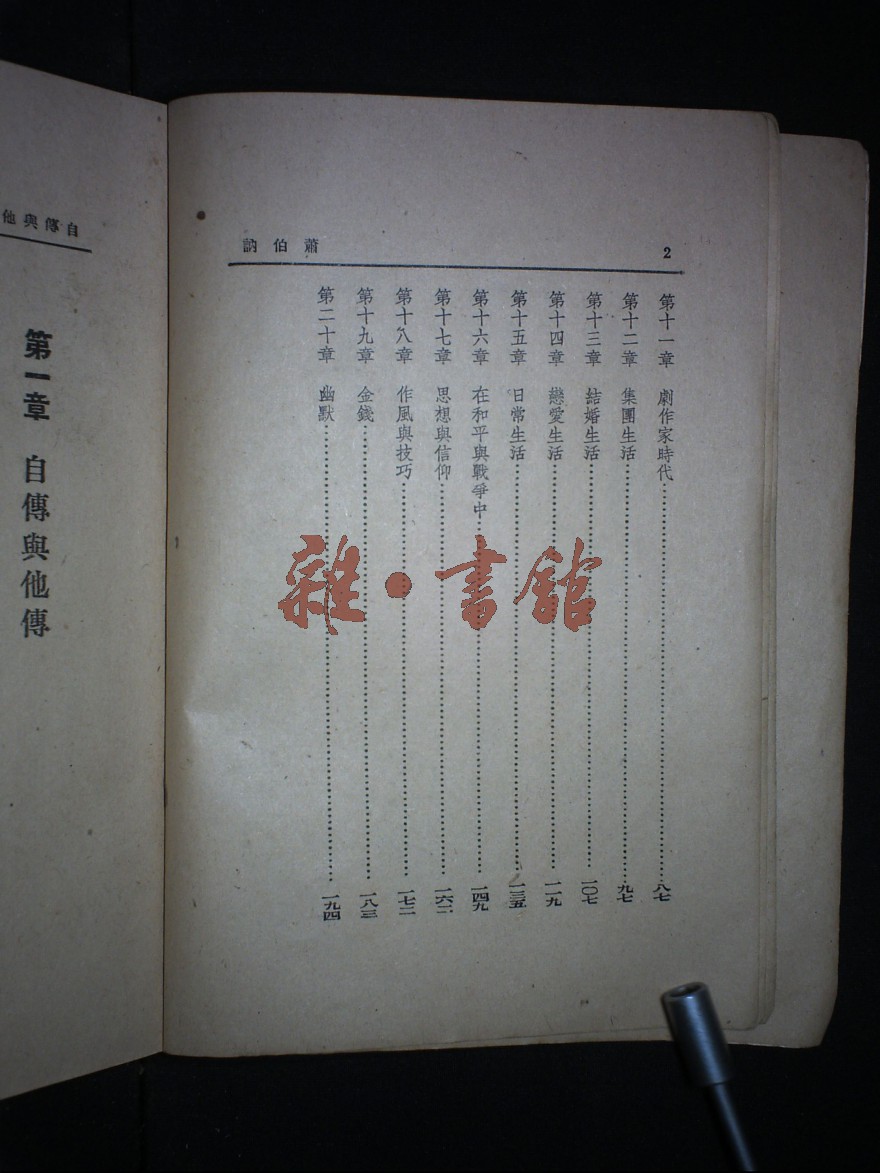 蕭伯訥
2
第十一章 劇作家時代……八七
第十二章 集團生活……九七
第十三章 結婚生活……一〇七
第十四章 戀愛生活……一一九
第十五章 日常生活……一三五
第十六章 在和平與戰爭中……一四九
第十七章 思想與信仰……一六二
第十八章 作風與技巧……一七二
第十九章 金錢……一八三
第二十章 幽默……一九四
自傳與他
第一章 自傳與他傳
雜·書館